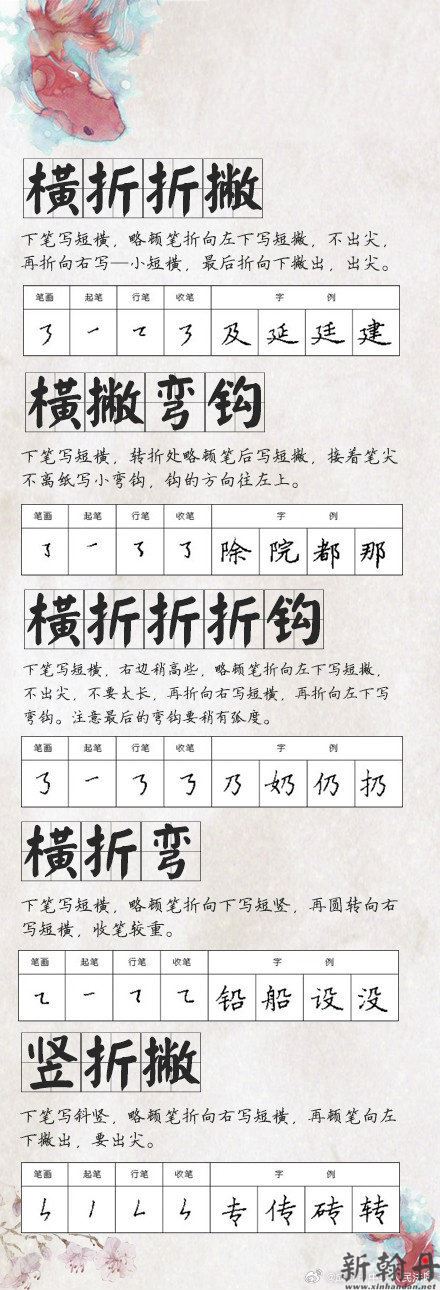 横折折撇
下笔写短横，略顿笔折向左下写短撇，不出尖，
再折向右写一小短横，最后折向下撇出，出尖。
笔画 起笔 行笔 收笔 字 例
及 延 廷 建
横撇弯钩
下笔写短横，转折处略顿笔后写短撇，接着笔尖
不离纸写小弯钩，钩的方向往左上。
笔画 起笔 行笔 收笔 字 例
除 院 都 那
横折折折钩
下笔写短横，右边稍高些，略顿笔折向左下写短撇，
不出尖，不要太长，再折向右写短横，再折向左下写
弯钩。注意最后的弯钩要稍有弧度。
笔画 起笔 行笔 收笔 字 例
乃 奶 仍 扔
横折弯
下笔写短横，略顿笔折向下写短竖，再圆转向右
写短横，收笔较重。
笔画 起笔 行笔 收笔 字 例
铅 船 设 没
竖折撇
下笔写斜竖，略顿笔折向右写短横，再顿笔向左
下撇出，要出尖。
笔画 起笔 行笔 收笔 字 例
专 传 砖 转
新翰丹
www.xinhandan.com